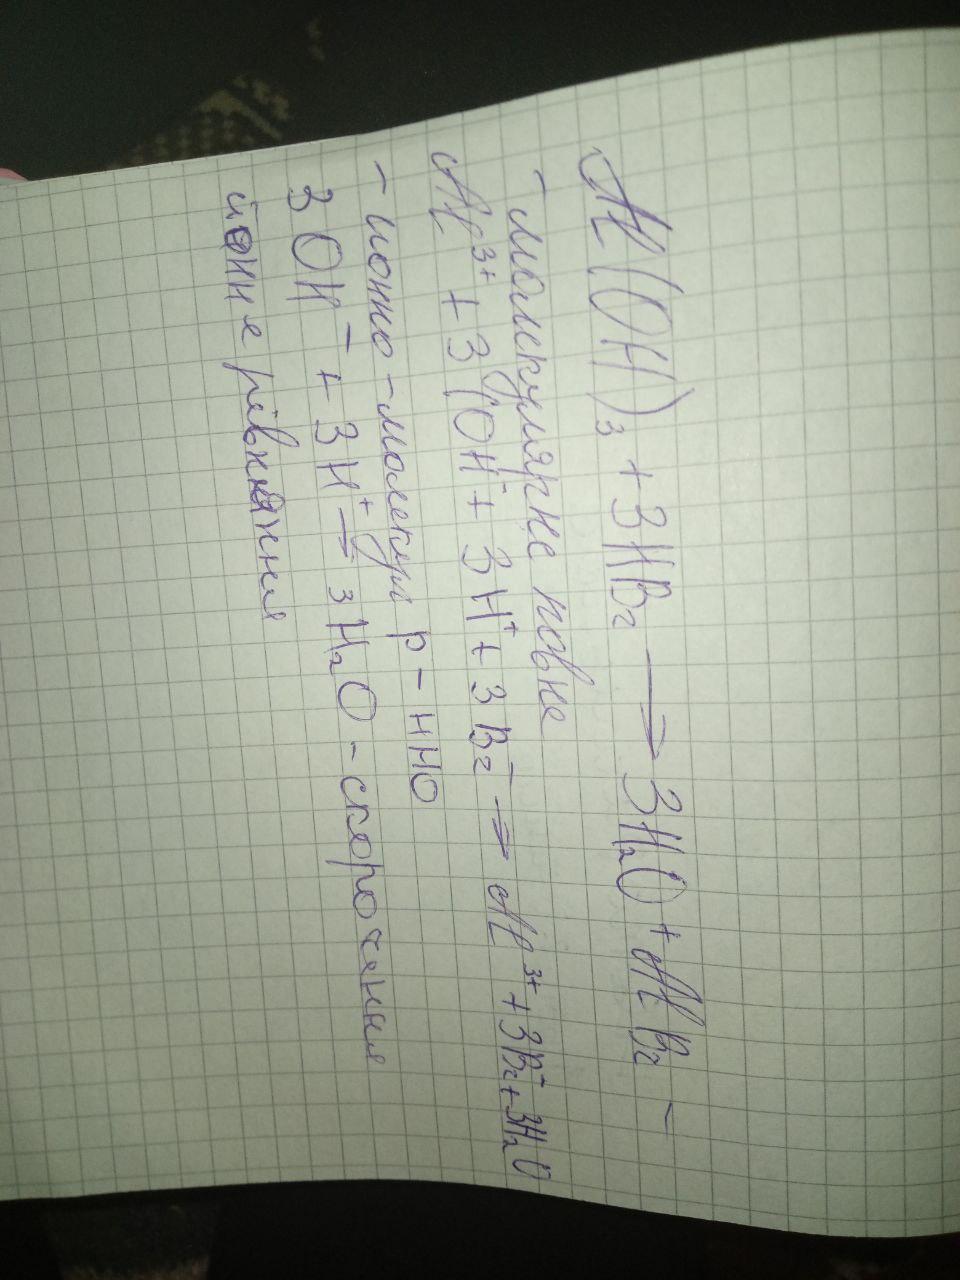 Al(OH)₃ + 3HBr → 3H₂O + AlBr -
- молекулярне повне
Al³⁺ + 3(OH⁻ + 3H⁺ + 3Br⁻ → Al³⁺ + 3Br⁻ + 3H₂O
- йонно - молекул р - ННО
3OH⁻ + 3H⁺ → 3H₂O - скорочення
йонне рівняння